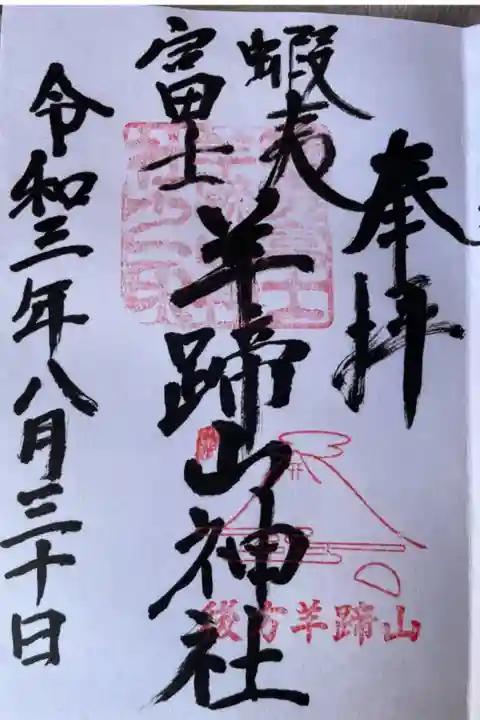 奉拝
蝦夷
富士
羊蹄山神社
令和三年八月三十日
後方羊蹄山